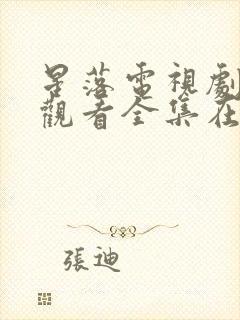 星落電視劇
觀看全集在
張迪